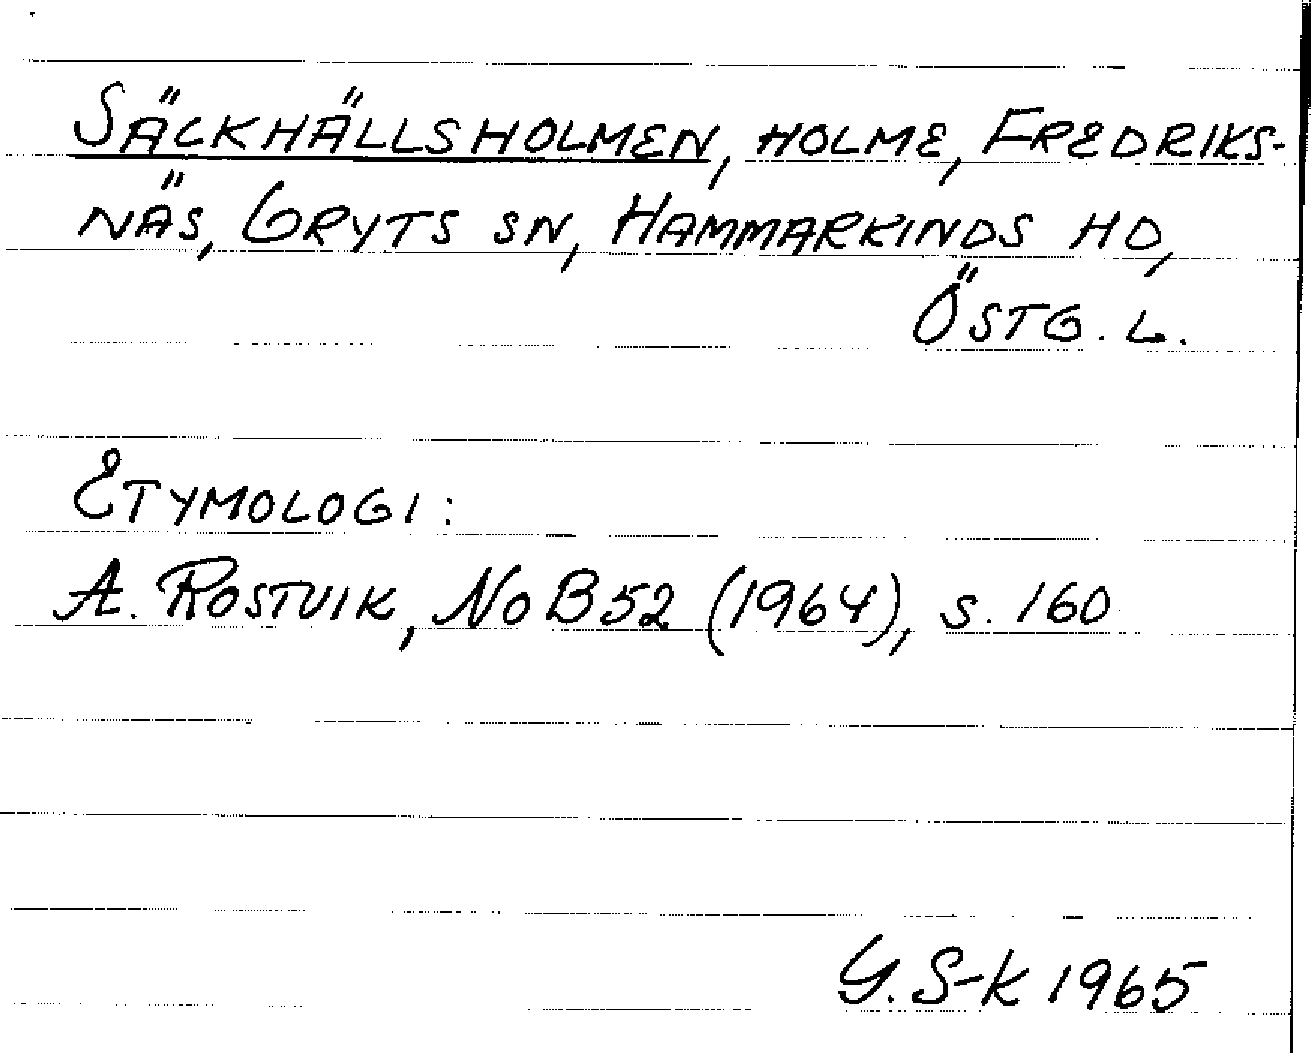 SÄCKHÄLLSHOLMEN, HOLME, FREDRIKS-
NÄS, GRYTS SN, HAMMARKINDS HD,
ÖSTG. L.
ETYMOLOGI:
A. ROSTVIK, NoB 52 (1964), s. 160
G. S-K 1965